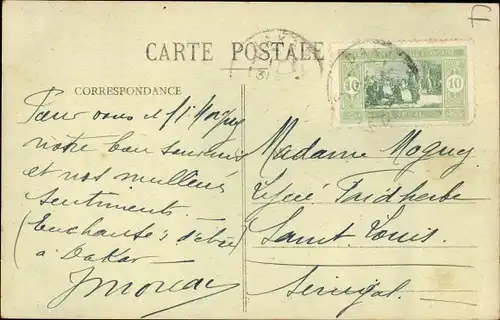 CARTE POSTALE
CORRESPONDANCE
Pour vous et
notre bon souvenir
et nos meilleurs
sentiments.
(Enchantés d'être
à Dakar
Madame Moguy
Lycée Faidherbe
Saint Louis.
Sénégal.
10 10